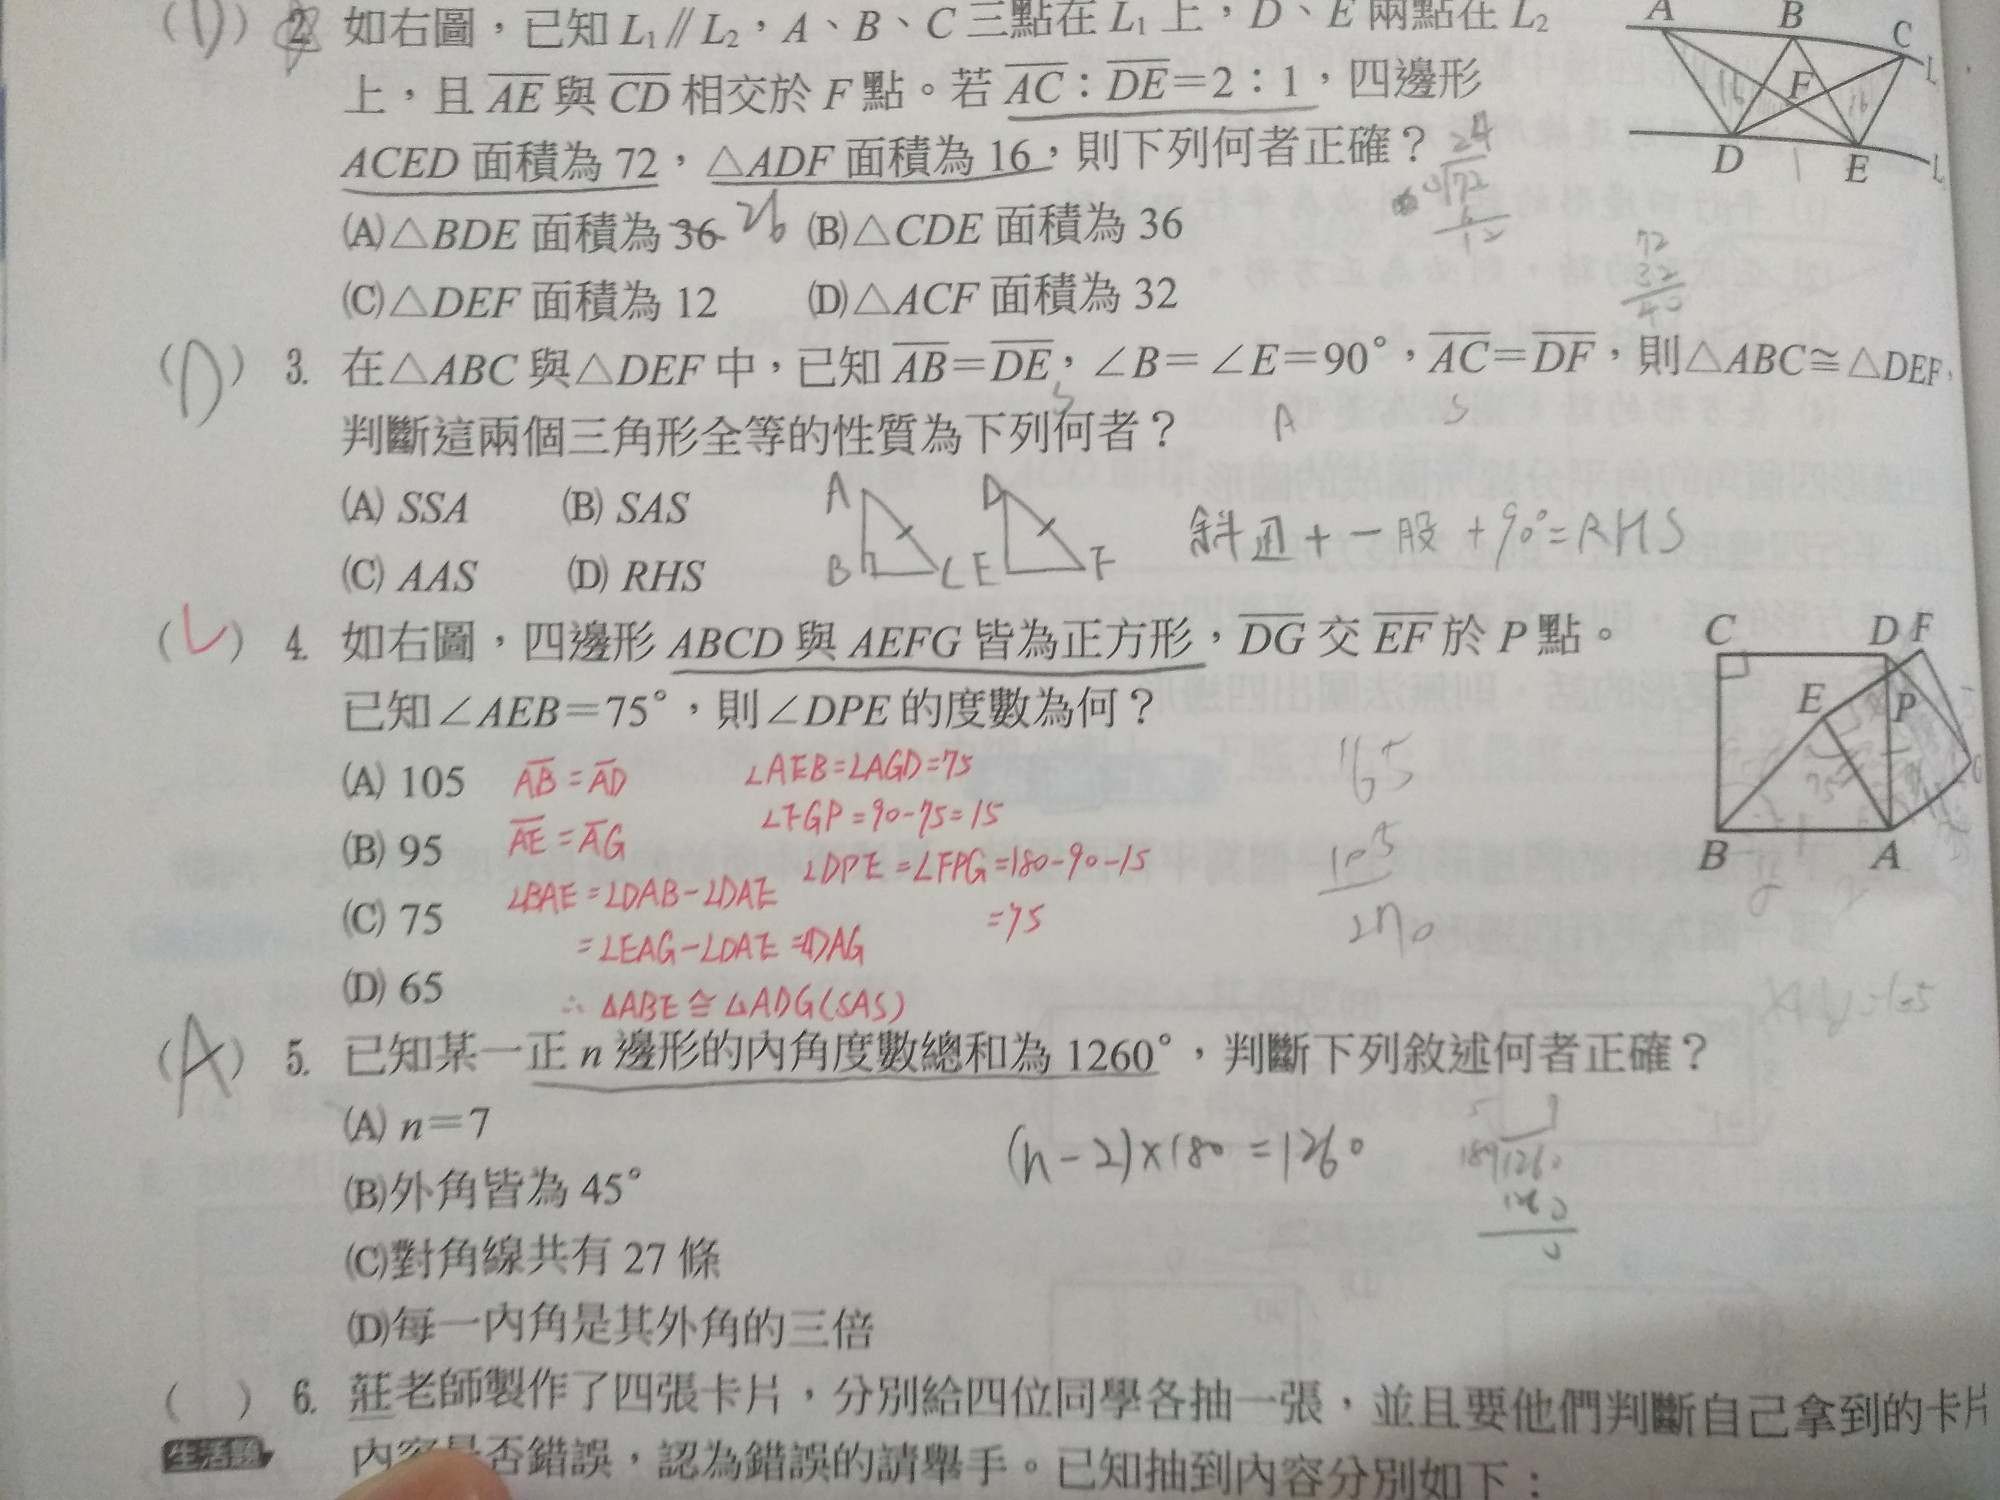 (D) 2. 如右圖，已知 L₁∥L₂，A、B、C 三點在 L₁ 上，D、E 兩點在 L₂
上，且 AE 與 CD 相交於 F 點。若 AC：DE＝2：1，四邊形
ACED 面積為 72，△ADF 面積為 16，則下列何者正確？
(A)△BDE 面積為 36 26 (B)△CDE 面積為 36
(C)△DEF 面積為 12 (D)△ACF 面積為 32
A B C
F
16 16
D 1 E
24
72
12
72
32
40
(D) 3. 在△ABC 與△DEF 中，已知 AB＝DE，∠B＝∠E＝90°，AC＝DF，則△ABC≅△DEF，
S A S
判斷這兩個三角形全等的性質為下列何者？
(A) SSA (B) SAS
(C) AAS (D) RHS
A B C D E F
斜邊+一股+90°=RHS
( ) 4. 如右圖，四邊形 ABCD 與 AEFG 皆為正方形，DG 交 EF 於 P 點。
已知∠AEB＝75°，則∠DPE 的度數為何？
(A) 105
(B) 95
(C) 75
(D) 65
AB=AD
AE=AG
∠BAE=∠DAB-∠DAE
=∠EAG-∠DAE=∠DAG
∴ΔABE≅ΔADG(SAS)
∠AEB=∠AGD=75
∠FGP=90-75=15
∠DPE=∠FPG=180-90-15
=75
165
105
270
C D F
E P
75
G
B A
(A) 5. 已知某一正 n 邊形的內角度數總和為 1260°，判斷下列敘述何者正確？
(A) n＝7
(B)外角皆為 45°
(C)對角線共有 27 條
(D)每一內角是其外角的三倍
(n-2)×180=1260
1260
( ) 6. 莊老師製作了四張卡片，分別給四位同學各抽一張，並且要他們判斷自己拿到的卡片
生活題 內容是否錯誤，認為錯誤的請舉手。已知抽到內容分別如下：